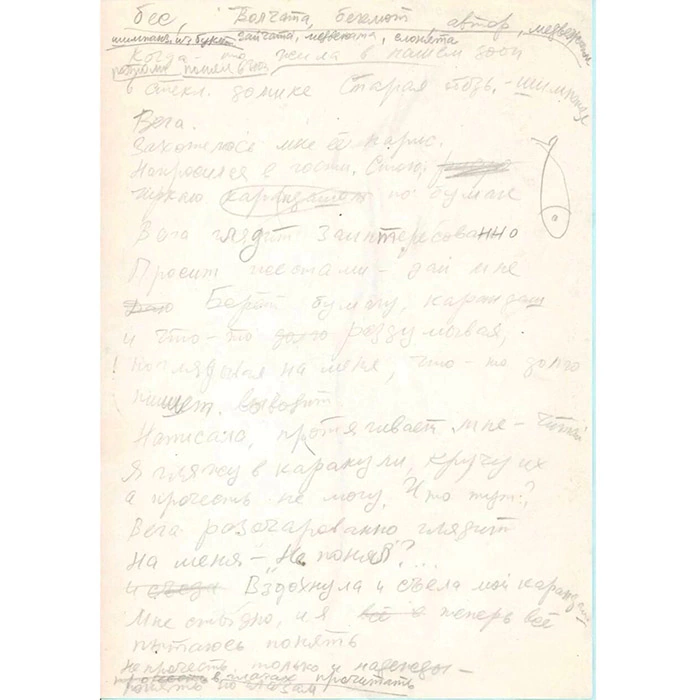 бес, Волчата, бегемот, автор, медвежонок
шимпанзе из букв зайчата, медвежата, слонята
Когда-то жила в нашем зоо
потром понял в чём
в стекл. домике Старая обез.-шимпанзе
Вега.
Захотелось мне её нарис.
Напросился в гости. Стою.
карандашом по бумаге
Вега глядит заинтересованно
Просит жестами - дай мне
Даю Берёт бумагу, карандаш
и что-то долго раздумывая,
! поглядывая на меня, что-то долго
пишет, выводит.
Написала, протягивает мне - Читай
Я гляжу в каракули, кручу их
а прочесть не могу. Что тут?
Вега разочарованно глядит
на меня - "Не понял"?...
и съела Вздохнула и съела мой карандаш
Мне стыдно, и я всё в теперь всё
пытаюсь понять
Не прочесть, только и надежды -
прочесть в глазах прочитать
понять по глазам